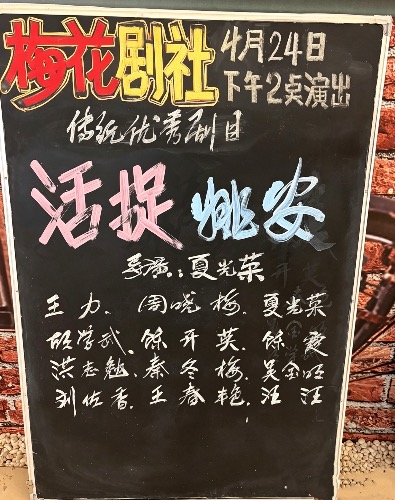 梅花剧社 4月24日
下午2点演出
传统优秀剧目
活捉姚安
导演:夏光荣
王力、周晓梅、夏光荣
胡学武、馀开英、馀霞
洪志勉、秦冬梅、吴金旺
刘佐香、王春艳、汪汪